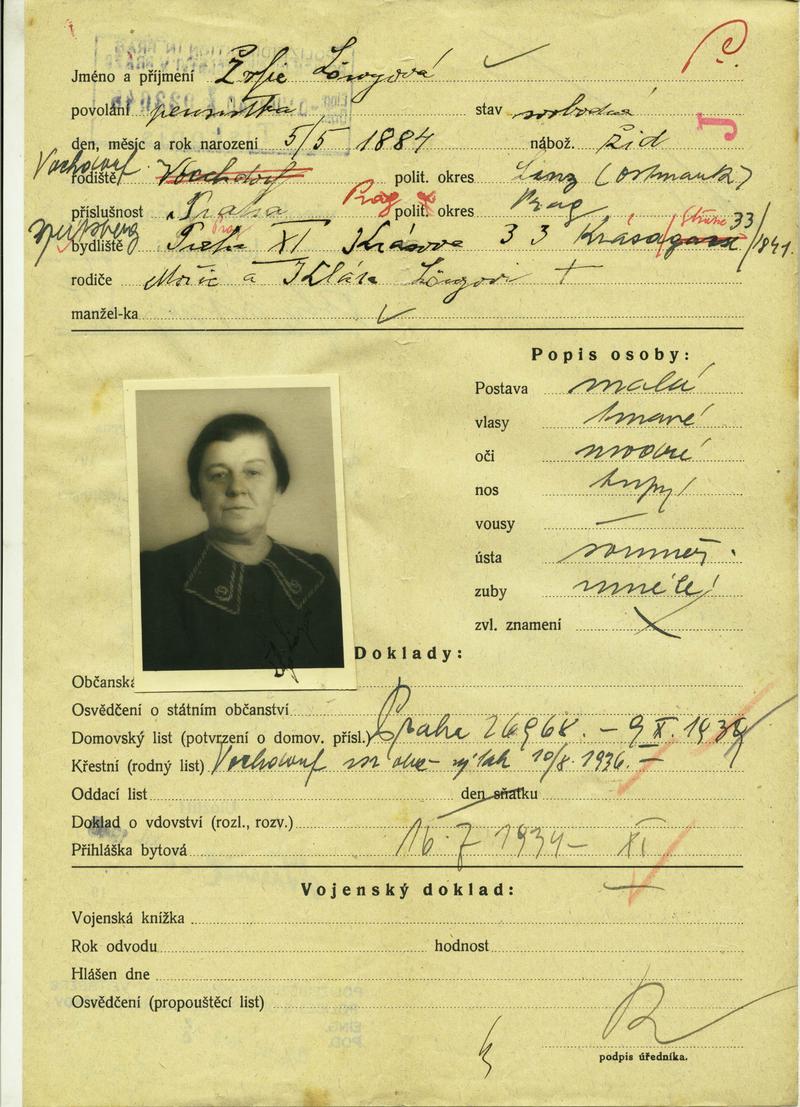 P.
Jméno a příjmení Žofie Löwyová
povolání pensistka stav svobodná
J
den, měsíc a rok narození 5/5 1884 nábož. žid
Vochdorf
rodiště Vochdorf polit. okres Linz (Ostmark)
příslušnost Praha Prag polit. okres Prag
bydliště Praha XI Krásova 33 Krásagasse 33/1841.
rodiče Mořic a Klára Löwyovi +
manžel-ka
Popis osoby:
Postava malá
vlasy tmavé
oči modré
nos tupý
vousy —
ústa souměr.
zuby umělé
zvl. znamení
Doklady:
Občanská
Osvědčení o státním občanství
Domovský list (potvrzení o domov. přísl.) Praha 26968. - 9/X. 1939
Křestní (rodný list) Vochdorf 10/8. 1936.
Oddací list den sňatku
Doklad o vdovství (rozl., rozv.)
Přihláška bytová 16. 7 1934 - XI
Vojenský doklad:
Vojenská knížka
Rok odvodu hodnost
Hlášen dne
Osvědčení (propouštěcí list)
podpis úředníka.